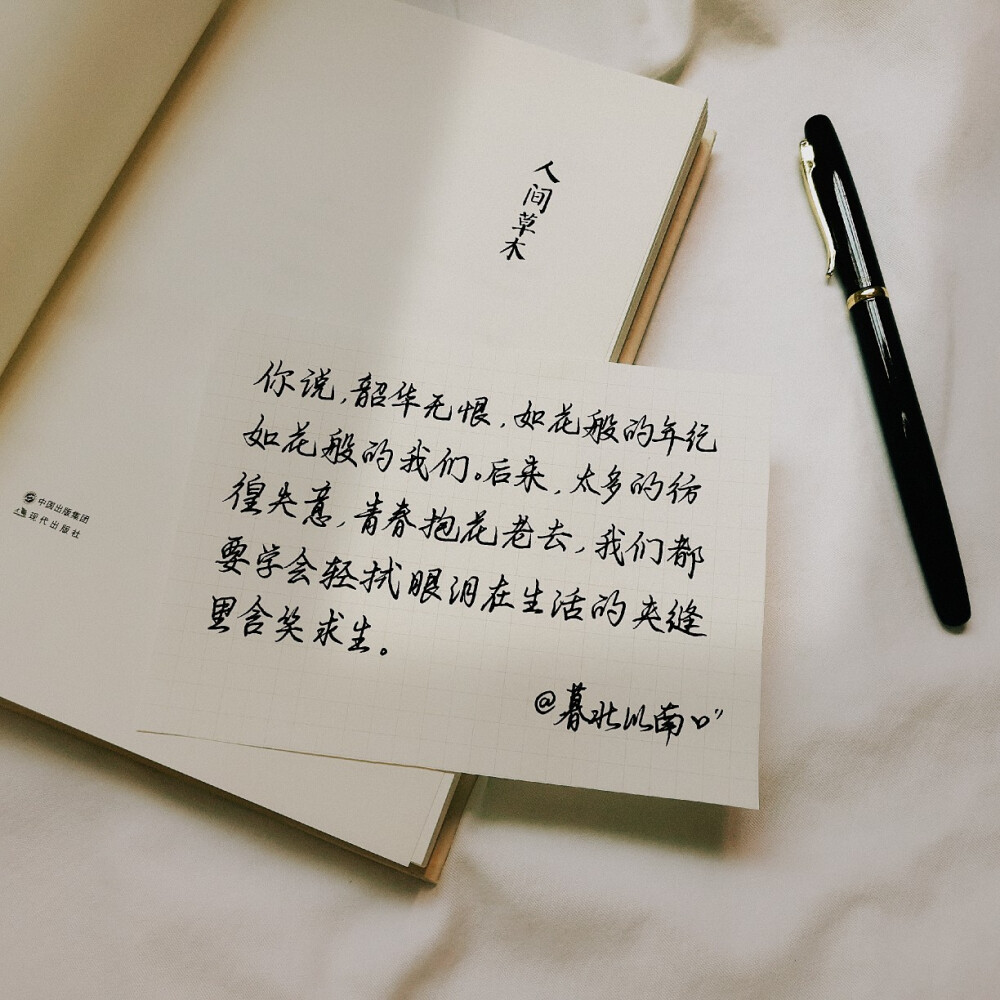 人间草木
你说,韶华无恨,如花般的年纪
如花般的我们。后来,太多的彷
徨失意,青春抱花老去,我们都
要学会轻拭眼泪在生活的夹缝
里含笑求生。
@暮北以南
中国出版集团
现代出版社